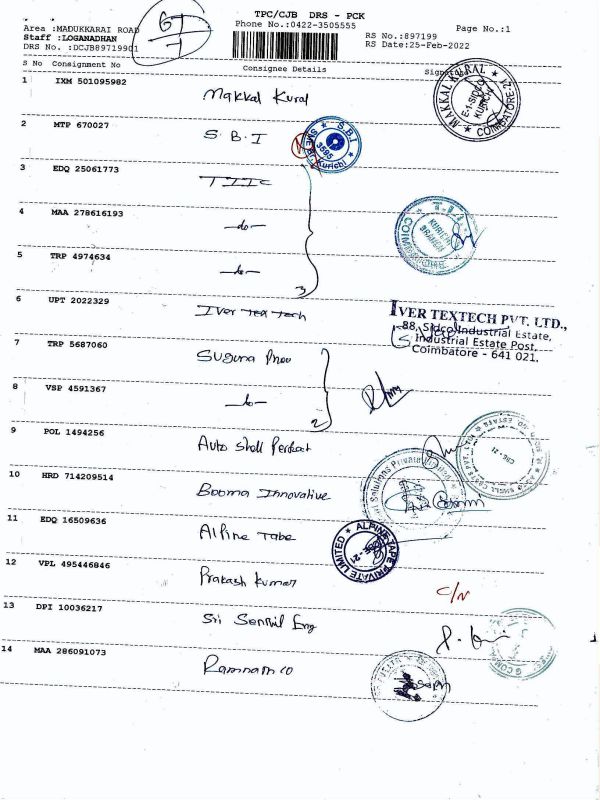 TPC/CJB DRS - PCK
Area :MADUKKARAI ROAD Phone No.:0422-3505555 Page No.:1
Staff :LOGANADHAN RS No.:897199
DRS No. :DCJB89719901 RS Date:25-Feb-2022
S No Consignment No Consignee Details Signature
1 IXM 501095982 Makkal Kural
MAKKAL KURAL COIMBATORE-21
2 MTP 670027 S.B.I
S.B.I 3595 Kurichi
3 EDQ 25061773 TIIC
4 MAA 278616193 -do-
KURICHI BRANCH
5 TRP 4974634 -do-
3
6 UPT 2022329 Iver Tex Tech
IVER TEXTECH PVT. LTD.,
88, Sidco Industrial Estate,
Industrial Estate Post,
Coimbatore - 641 021.
7 TRP 5687060 Suguna
8 VSP 4591367 -do-
2
9 POL 1494256 Auto Shell Perfect
10 HRD 714209514 Booma Innovative
Solutions Private Limited
11 EDQ 16509636 Alpine Tape
ALPINE TAPE PRIVATE LIMITED
12 VPL 495446846 Prakash Kumar C/N
13 DPI 10036217 Sri Senthil Eng
14 MAA 286091073 Ramnam co